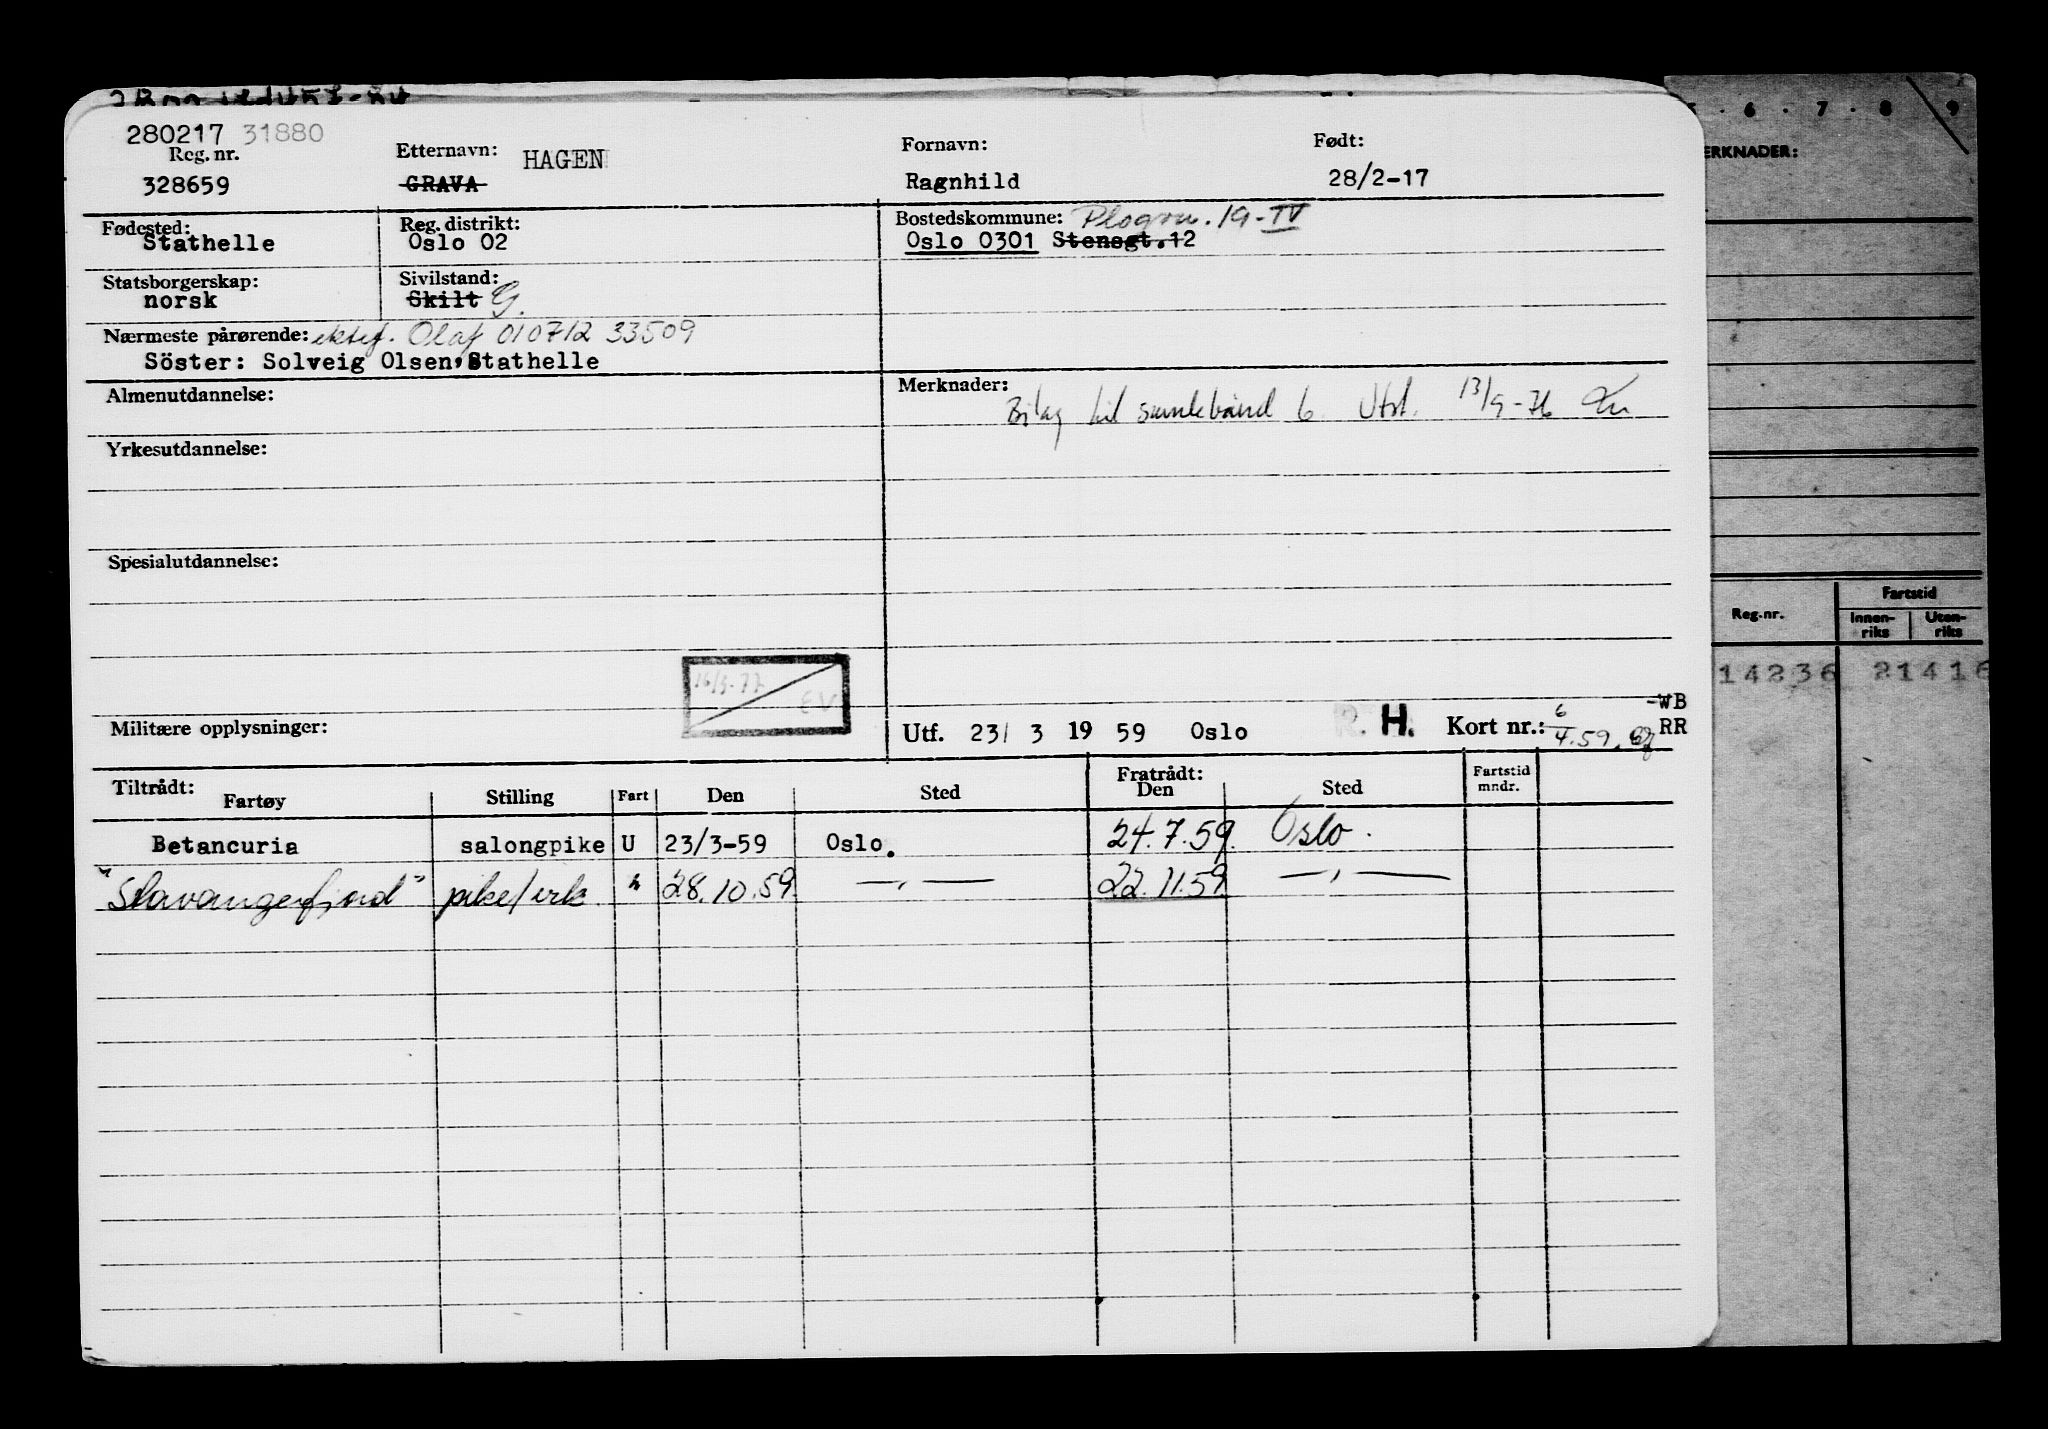 280217 31880
Reg. nr.
328659
Etternavn: HAGEN
GRAVA
Fornavn:
Ragnhild
Født:
28/2-17
Fødested:
Stathelle
Reg. distrikt:
Oslo 02
Bostedskommune: Plogvn. 19-IV
Oslo 0301 Stensgt. 12
Statsborgerskap:
norsk
Sivilstand:
Skilt G.
Nærmeste pårørende: ektef. Olaf 010712 33509
Söster: Solveig Olsen, Stathelle
Almenutdannelse:
Merknader:
Bilag til samlebånd 6. Utst. 13/9-76
Yrkesutdannelse:
Spesialutdannelse:
16/3-77
EV
Militære opplysninger:
Utf. 23/ 3 19 59 Oslo
R. H. Kort nr.:
6/4.59.
-WB
RR
Tiltrådt:
Fartøy Stilling Fart Den Sted
Fratrådt:
Den Sted
Fartstid
mndr.
Betancuria salongpike U 23/3-59 Oslo. 24.7.59. Oslo.
"Stavangerfjord" pike/virk " 28.10.59 —,— 22.11.59 —,—
6 . 7 . 8 . 9
ERKNADER:
Reg.nr.
Fartstid
Innen-
riks
Uten-
riks
14236 21416